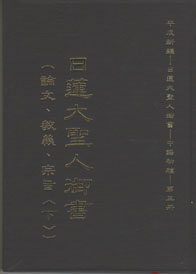 平成新編—日蓮大聖人御書—中譯初稿—第五冊
日蓮大聖人御書
（論文、教義、宗旨〈下〉）